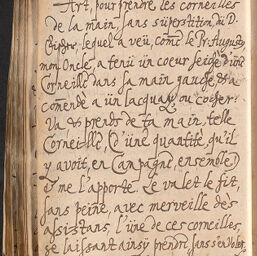 Art, pour prendre les corneilles
de la main, sans superstition, ni D.
lequel a veü, comē le Pr. Augusty
mon Oncle, a tenu un coeur seige d'une
Corneille dans sa main gauche, & a
comende a un lacquay, ou cocher:
Va & prends de ta main telle
Corneille, (d'une quantité, qu'il
y avoit, en Campagne, ensemble)
& me l'apporte. Le valet le fit,
sans peine, avec merveille des
asistans, l'une de ces corneilles
se laissant ainsy prendre sans s'en voler.